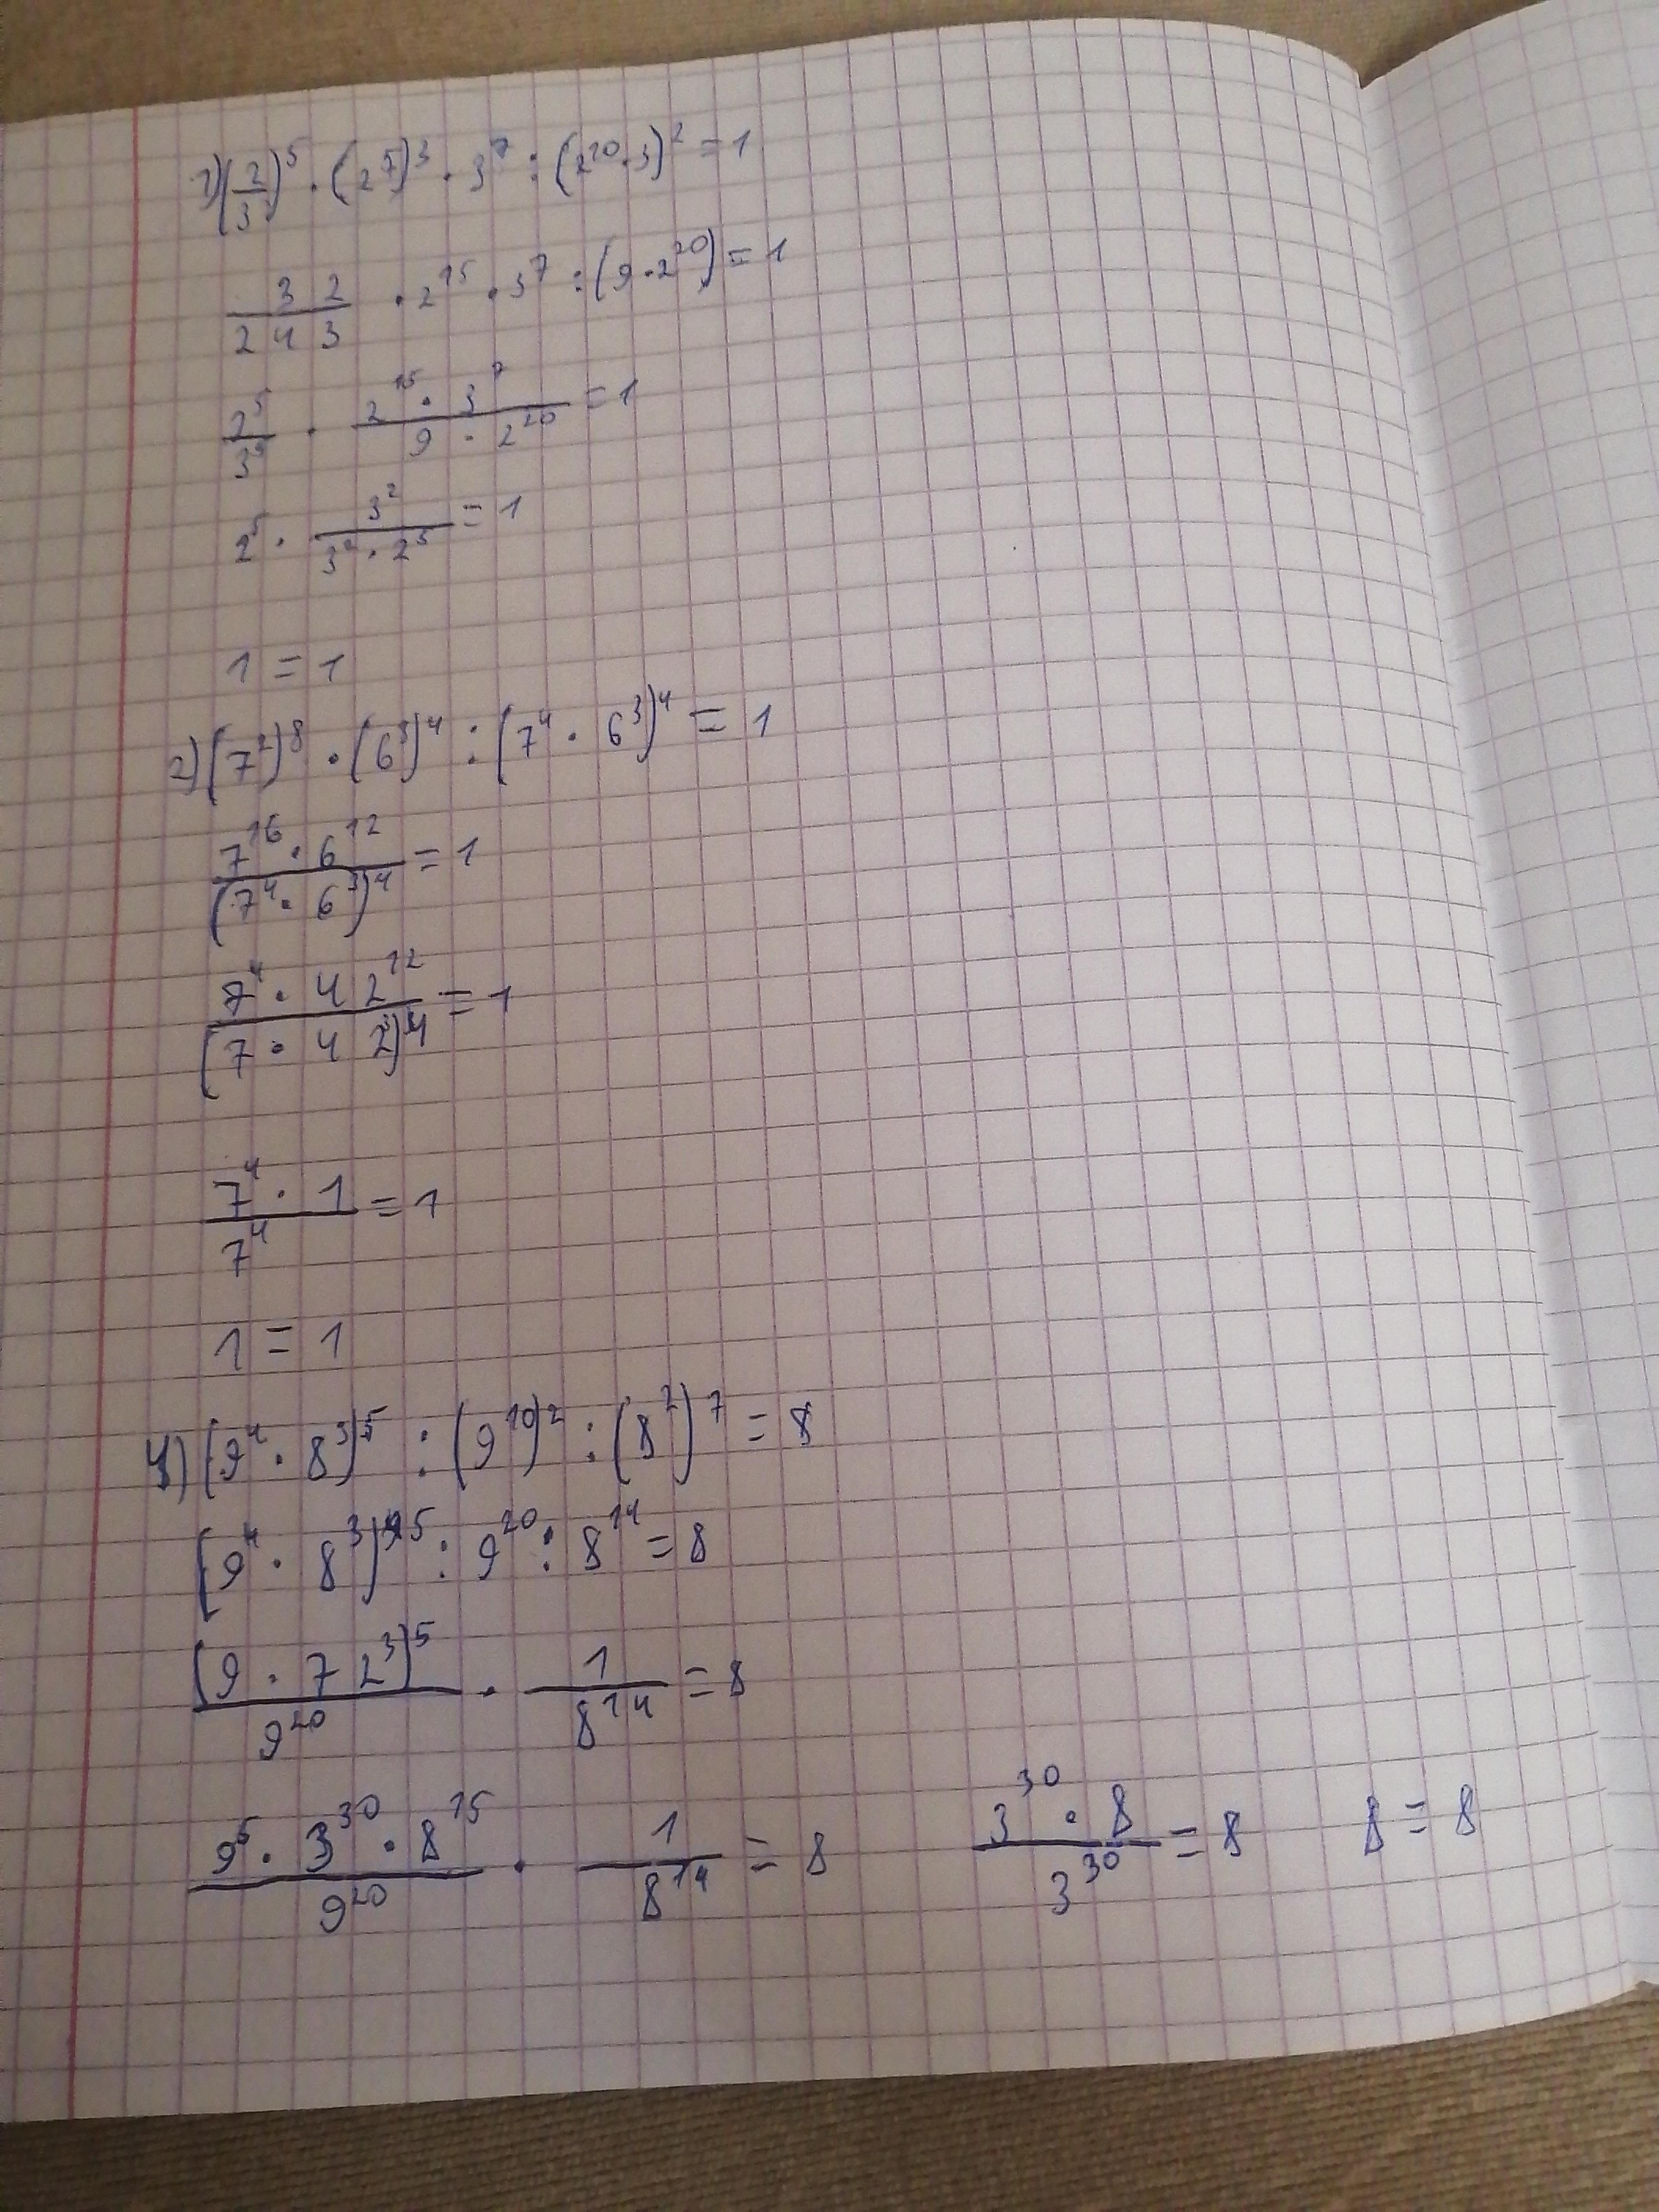 1) (2/3)⁵ · (2⁵)³ · 3⁷ : (2²⁰ · 3)² = 1
32/243 · 2¹⁵ · 3⁷ : (9 · 2²⁰) = 1
2⁵/3⁵ · (2¹⁵ · 3⁷)/(9 · 2²⁰) = 1
2⁵ · 3²/(3² · 2⁵) = 1
1 = 1
2) (7²)⁸ · (6³)⁴ : (7⁴ · 6³)⁴ = 1
(7¹⁶ · 6¹²)/(7⁴ · 6³)⁴ = 1
(7⁴ · 42¹²)/(7 · 42³)⁴ = 1
(7⁴ · 1)/7⁴ = 1
1 = 1
4) (9⁴ · 8³)⁵ : (9¹⁰)² : (8²)⁷ = 8
(9⁴ · 8³)⁵ : 9²⁰ : 8¹⁴ = 8
(9 · 72³)⁵/9²⁰ · 1/8¹⁴ = 8
(9⁵ · 3³⁰ · 8¹⁵)/9²⁰ · 1/8¹⁴ = 8 (3³⁰ · 8)/3³⁰ = 8 8 = 8